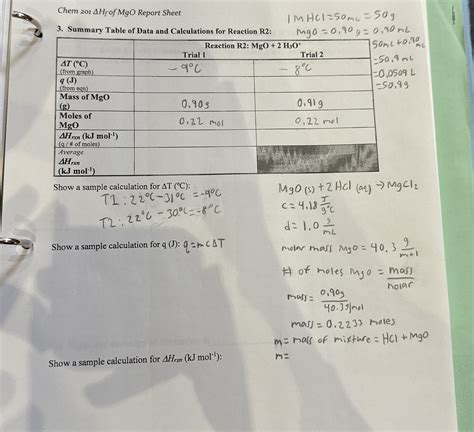 Chem 201 ΔHf of MgO Report Sheet
1 M HCl = 50 mL = 50 g
MgO = 0.90 g = 0.90 mL
50 mL + 0.90 mL
= 50.9 mL
= 0.0509 L
= 50.9 g
3. Summary Table of Data and Calculations for Reaction R2:
Reaction R2: MgO + 2 H₃O⁺
Trial 1 Trial 2
ΔT (°C)
(from graph)
-9°C -8°C
q (J)
(from eqn)
Mass of MgO
(g)
0.90g 0.91g
Moles of
MgO
0.22 mol 0.22 mol
ΔHrxn (kJ mol⁻¹)
(q / # of moles)
Average
ΔHrxn
(kJ mol⁻¹)
Show a sample calculation for ΔT (°C):
T1: 22°C - 31°C = -9°C
T2: 22°C - 30°C = -8°C
MgO (s) + 2HCl (aq) → MgCl₂
c = 4.18 J/g°C
d = 1.0 g/mL
Show a sample calculation for q (J): q = mcΔT
molar mass MgO = 40.3 g/mol
# of moles MgO = mass/molar
mass = 0.90g/40.3g/mol
mass = 0.2233 moles
m = mass of mixture = HCl + MgO
m =
Show a sample calculation for ΔHrxn (kJ mol⁻¹):